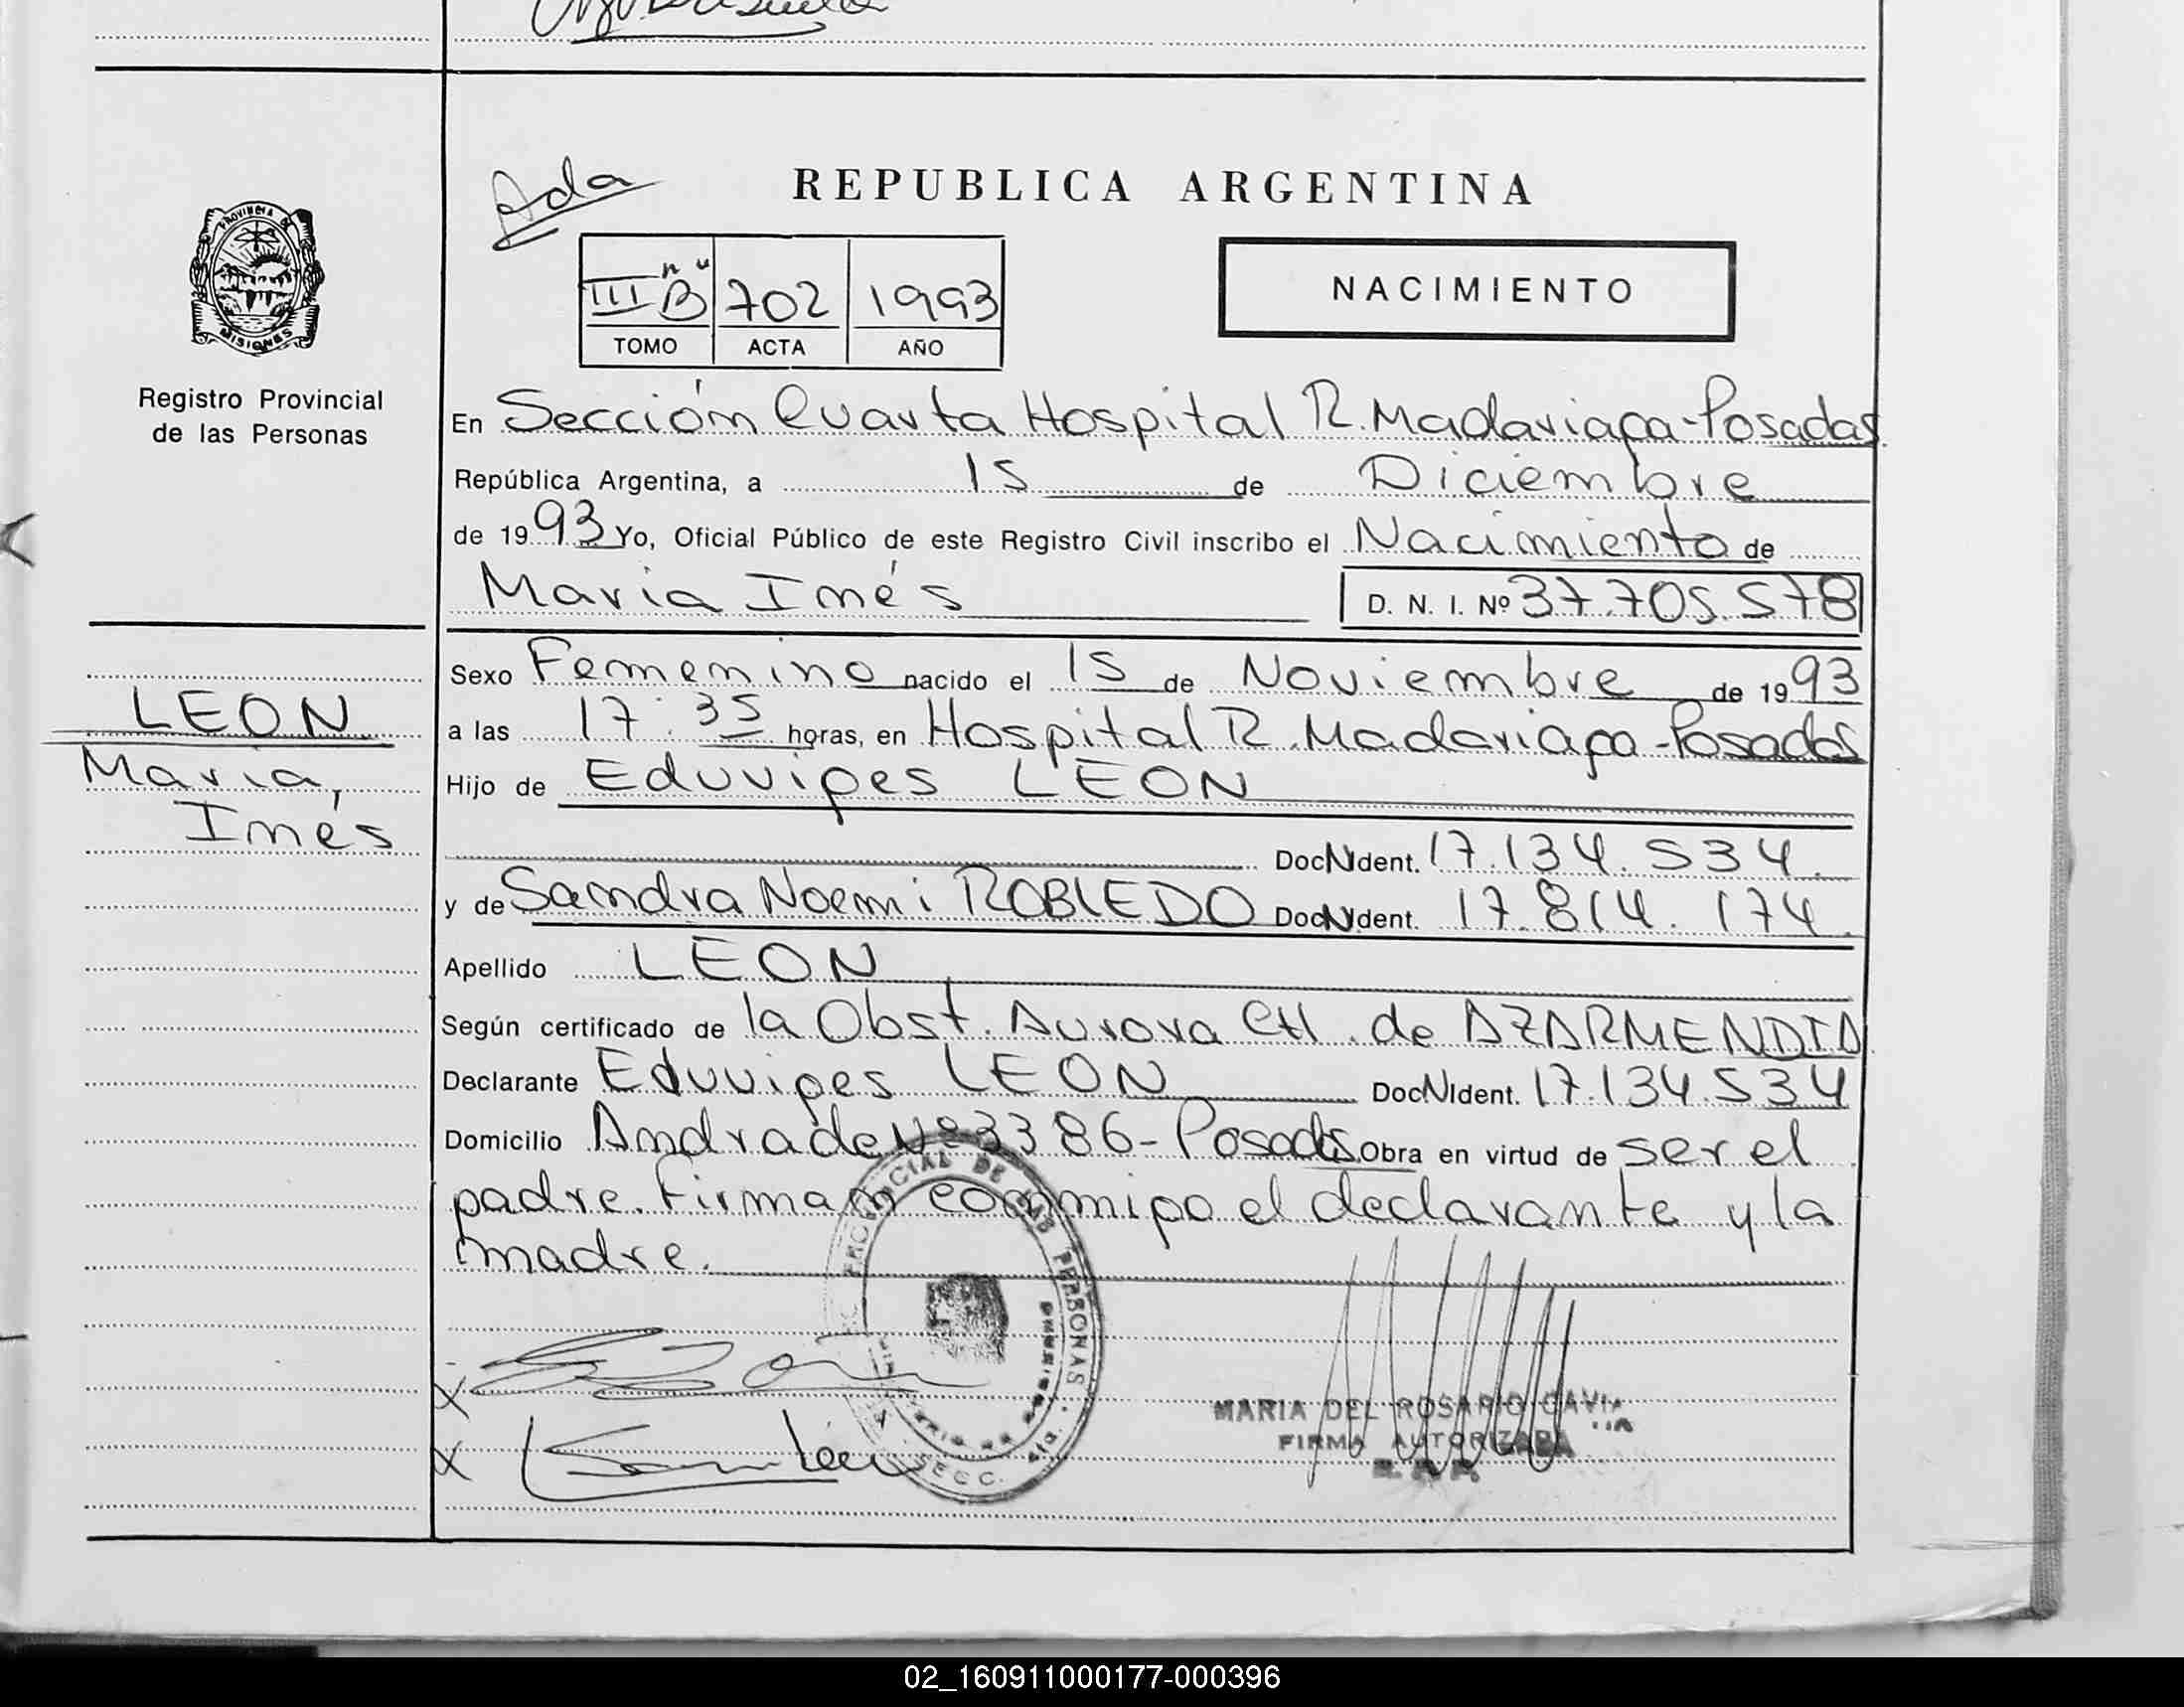 Ada
REPUBLICA ARGENTINA
PROVINCIA DE
MISIONES
Registro Provincial
de las Personas
III "B" 702 1993
TOMO ACTA AÑO
NACIMIENTO
En Sección Cuarta Hospital R. Madariaga - Posadas
República Argentina, a 15 de Diciembre
de 1993 Yo, Oficial Público de este Registro Civil inscribo el Nacimiento de
Maria Inés D. N. I. Nº 37.705.578
LEON
Maria,
Inés
Sexo Femenino nacido el 15 de Noviembre de 1993
a las 17:35 horas, en Hospital R. Madariaga - Posadas
Hijo de Eduviges LEON
Doc N Ident. 17.134.534.
y de Sandra Noemi ROBLEDO Doc N Ident. 17.814.174.
Apellido LEON
Según certificado de la Obst. Aurora de AZARMENDIA
Declarante Eduviges LEON Doc N Ident. 17.134.534
Domicilio Andrade Nº 3386 - Posadas Obra en virtud de ser el
padre. Firman conmigo el declarante y la
madre.
PROVINCIAL DE LAS PERSONAS
SECC.
X
X
MARIA DEL ROSARIO
FIRMA AUTORIZADA
02_160911000177-000396